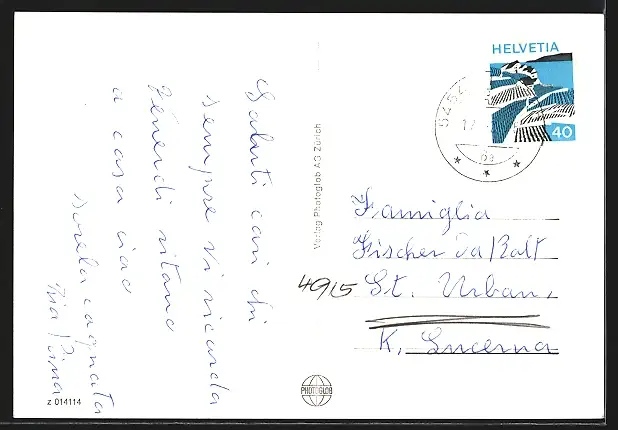 Saluti cari di
sempre vi ricorda
Venerdi ritano
a casa ciao
sorela cognata
Zia Pina
Verlag Photoglob AG Zürich
HELVETIA
40
5454
17
Famiglia
Fischer
4915 St. Urban,
K. Lucerna
PHOTOGLOB
Z 014114